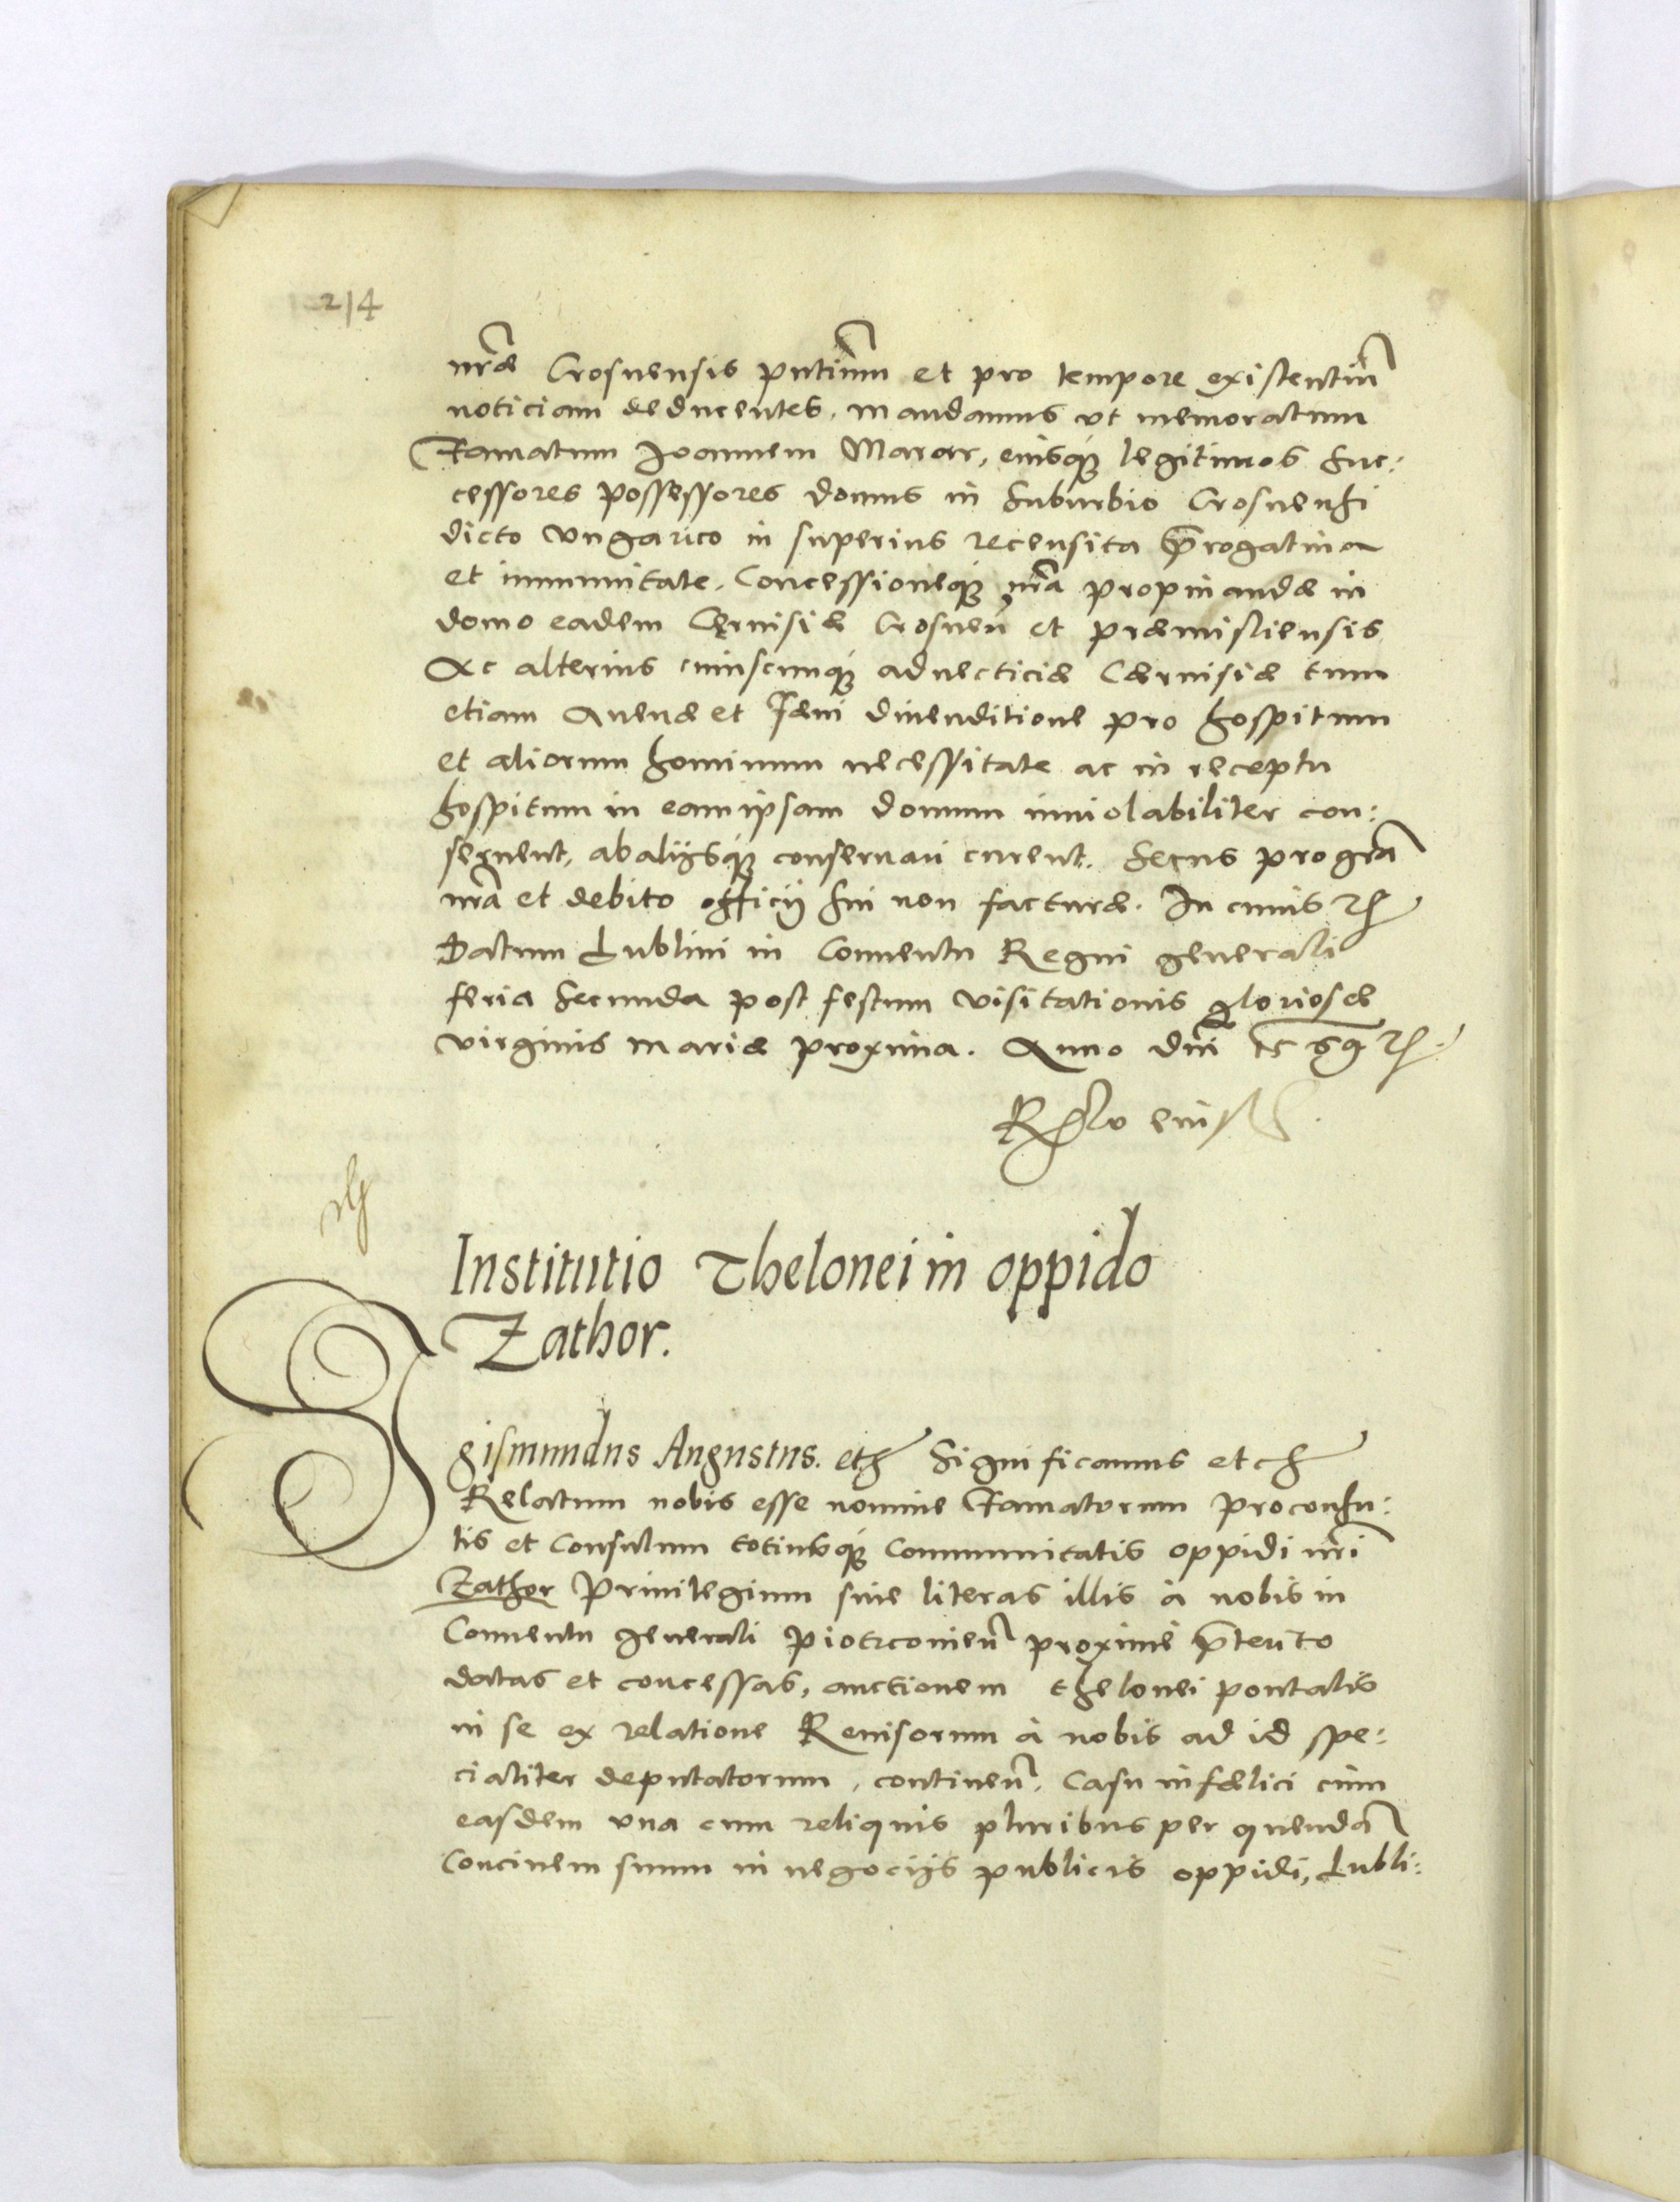 214
nrae Crosnensis pntium et pro tempore existentium
noticiam deducentes, mandamus ut memoratum
Famatum Joannem Marar, eiusque legitimos suc:
cessores possessores domus in suburbio Crosnensi
dicto Ungarico in superius recensita prerogatiua
et immunitate, Concessioneque nra propinandae in
domo eadem Cęruisiae Crosnen et praemisliensis
Ac alterius cuiuscunque aduecticiae Caeruisiae tum
etiam Auenae et Faeni diuenditione pro hospitum
et aliorum hominum necessitate ac in receptu
hospitum in eam ipsam domum inuiolabiliter con:
seruent, ab aliisque conseruari curent. Secus pro gra
nra et debito officij sui non facturae. In cuius rei
Datum Lublini in Conuentu Regni generali
feria secunda post festum visitationis gloriosae
virginis mariae proxima. Anno dni 1569
Rlo eius
Institutio Thelonei in oppido
Zathor.
Sigismundus Augustus. etc Significamus etc
Relatum nobis esse nomine Famatorum proconsu:
lis et Consulum totiusque Communitatis oppidi nri
Zathor Priuilegium siue literas illis à nobis in
Conuentu generali Piotrcouien proximè ptento
datas et concessas, auctionem thelonei pontalis
in se ex relatione Reuisorum à nobis ad id spe:
cialiter deputatorum, continen, Casu infaelici cum
easdem una cum reliquis pluribus per quendam
Conciuem suum in negocijs publicis oppidi, Lubli: